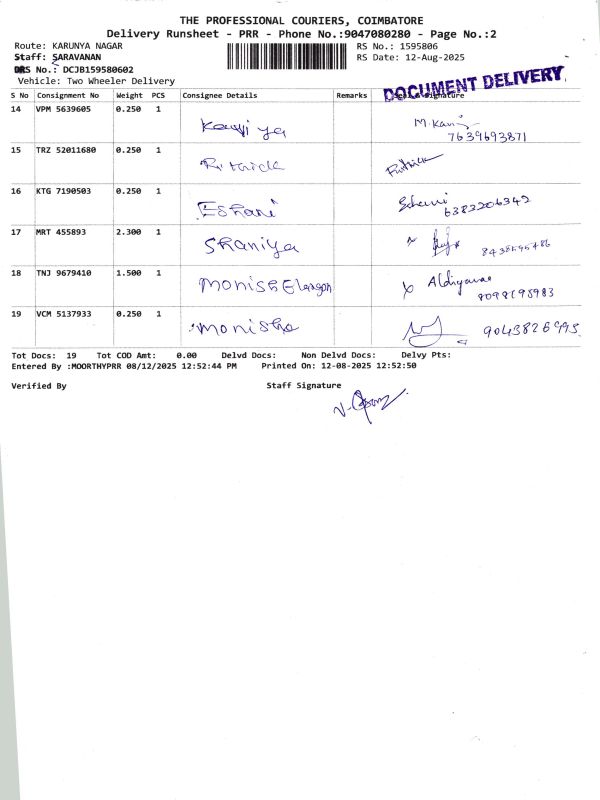 THE PROFESSIONAL COURIERS, COIMBATORE
Delivery Runsheet - PRR - Phone No.:9047080280 - Page No.:2
Route: KARUNYA NAGAR RS No.: 1595806
Staff: SARAVANAN RS Date: 12-Aug-2025
DRS No.: DCJB159580602
Vehicle: Two Wheeler Delivery
DOCUMENT DELIVERY
S No Consignment No Weight PCS Consignee Details Remarks Signature
14 VPM 5639605 0.250 1 Kavi ya M.Kavi
7639693871
15 TRZ 52011680 0.250 1 Rithick Rithick
16 KTG 7190503 0.250 1 Eshani
6383206342
17 MRT 455893 2.300 1 Shaniya
18 TNJ 9679410 1.500 1 Monish Elangon
19 VCM 5137933 0.250 1 Monisha
Tot Docs: 19 Tot COD Amt: 0.00 Delvd Docs: Non Delvd Docs: Delvy Pts:
Entered By :MOORTHYPRR 08/12/2025 12:52:44 PM Printed On: 12-08-2025 12:52:50
Verified By Staff Signature